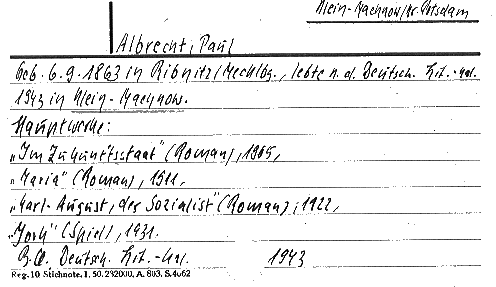 Klein-Machnow/Kr. Potsdam
Albrecht, Paul
Geb. 6.9.1863 in Ribnitz/Mecklbg., lebte n. d. Deutsch. Lit.-Kal.
1943 in Klein-Machnow.
Hauptwerke:
„Im Zukunftsstaat" (Roman), 1905,
„Maria" (Roman), 1911,
„Karl-August, der Sozialist" (Roman), 1922,
„Jork" (Spiel), 1931.
Deutsch. Lit.-Kal. 1943
Reg. 10 Stichnote. 1. 50. 232000. A. 803. S. 4062